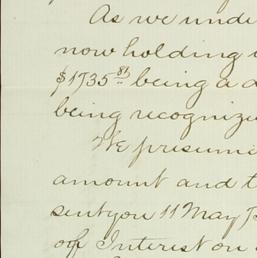 As we unde
now holding
$1735 81 being a d
being recogniz
We presum
amount and t
sent you 11 May
of Interest on